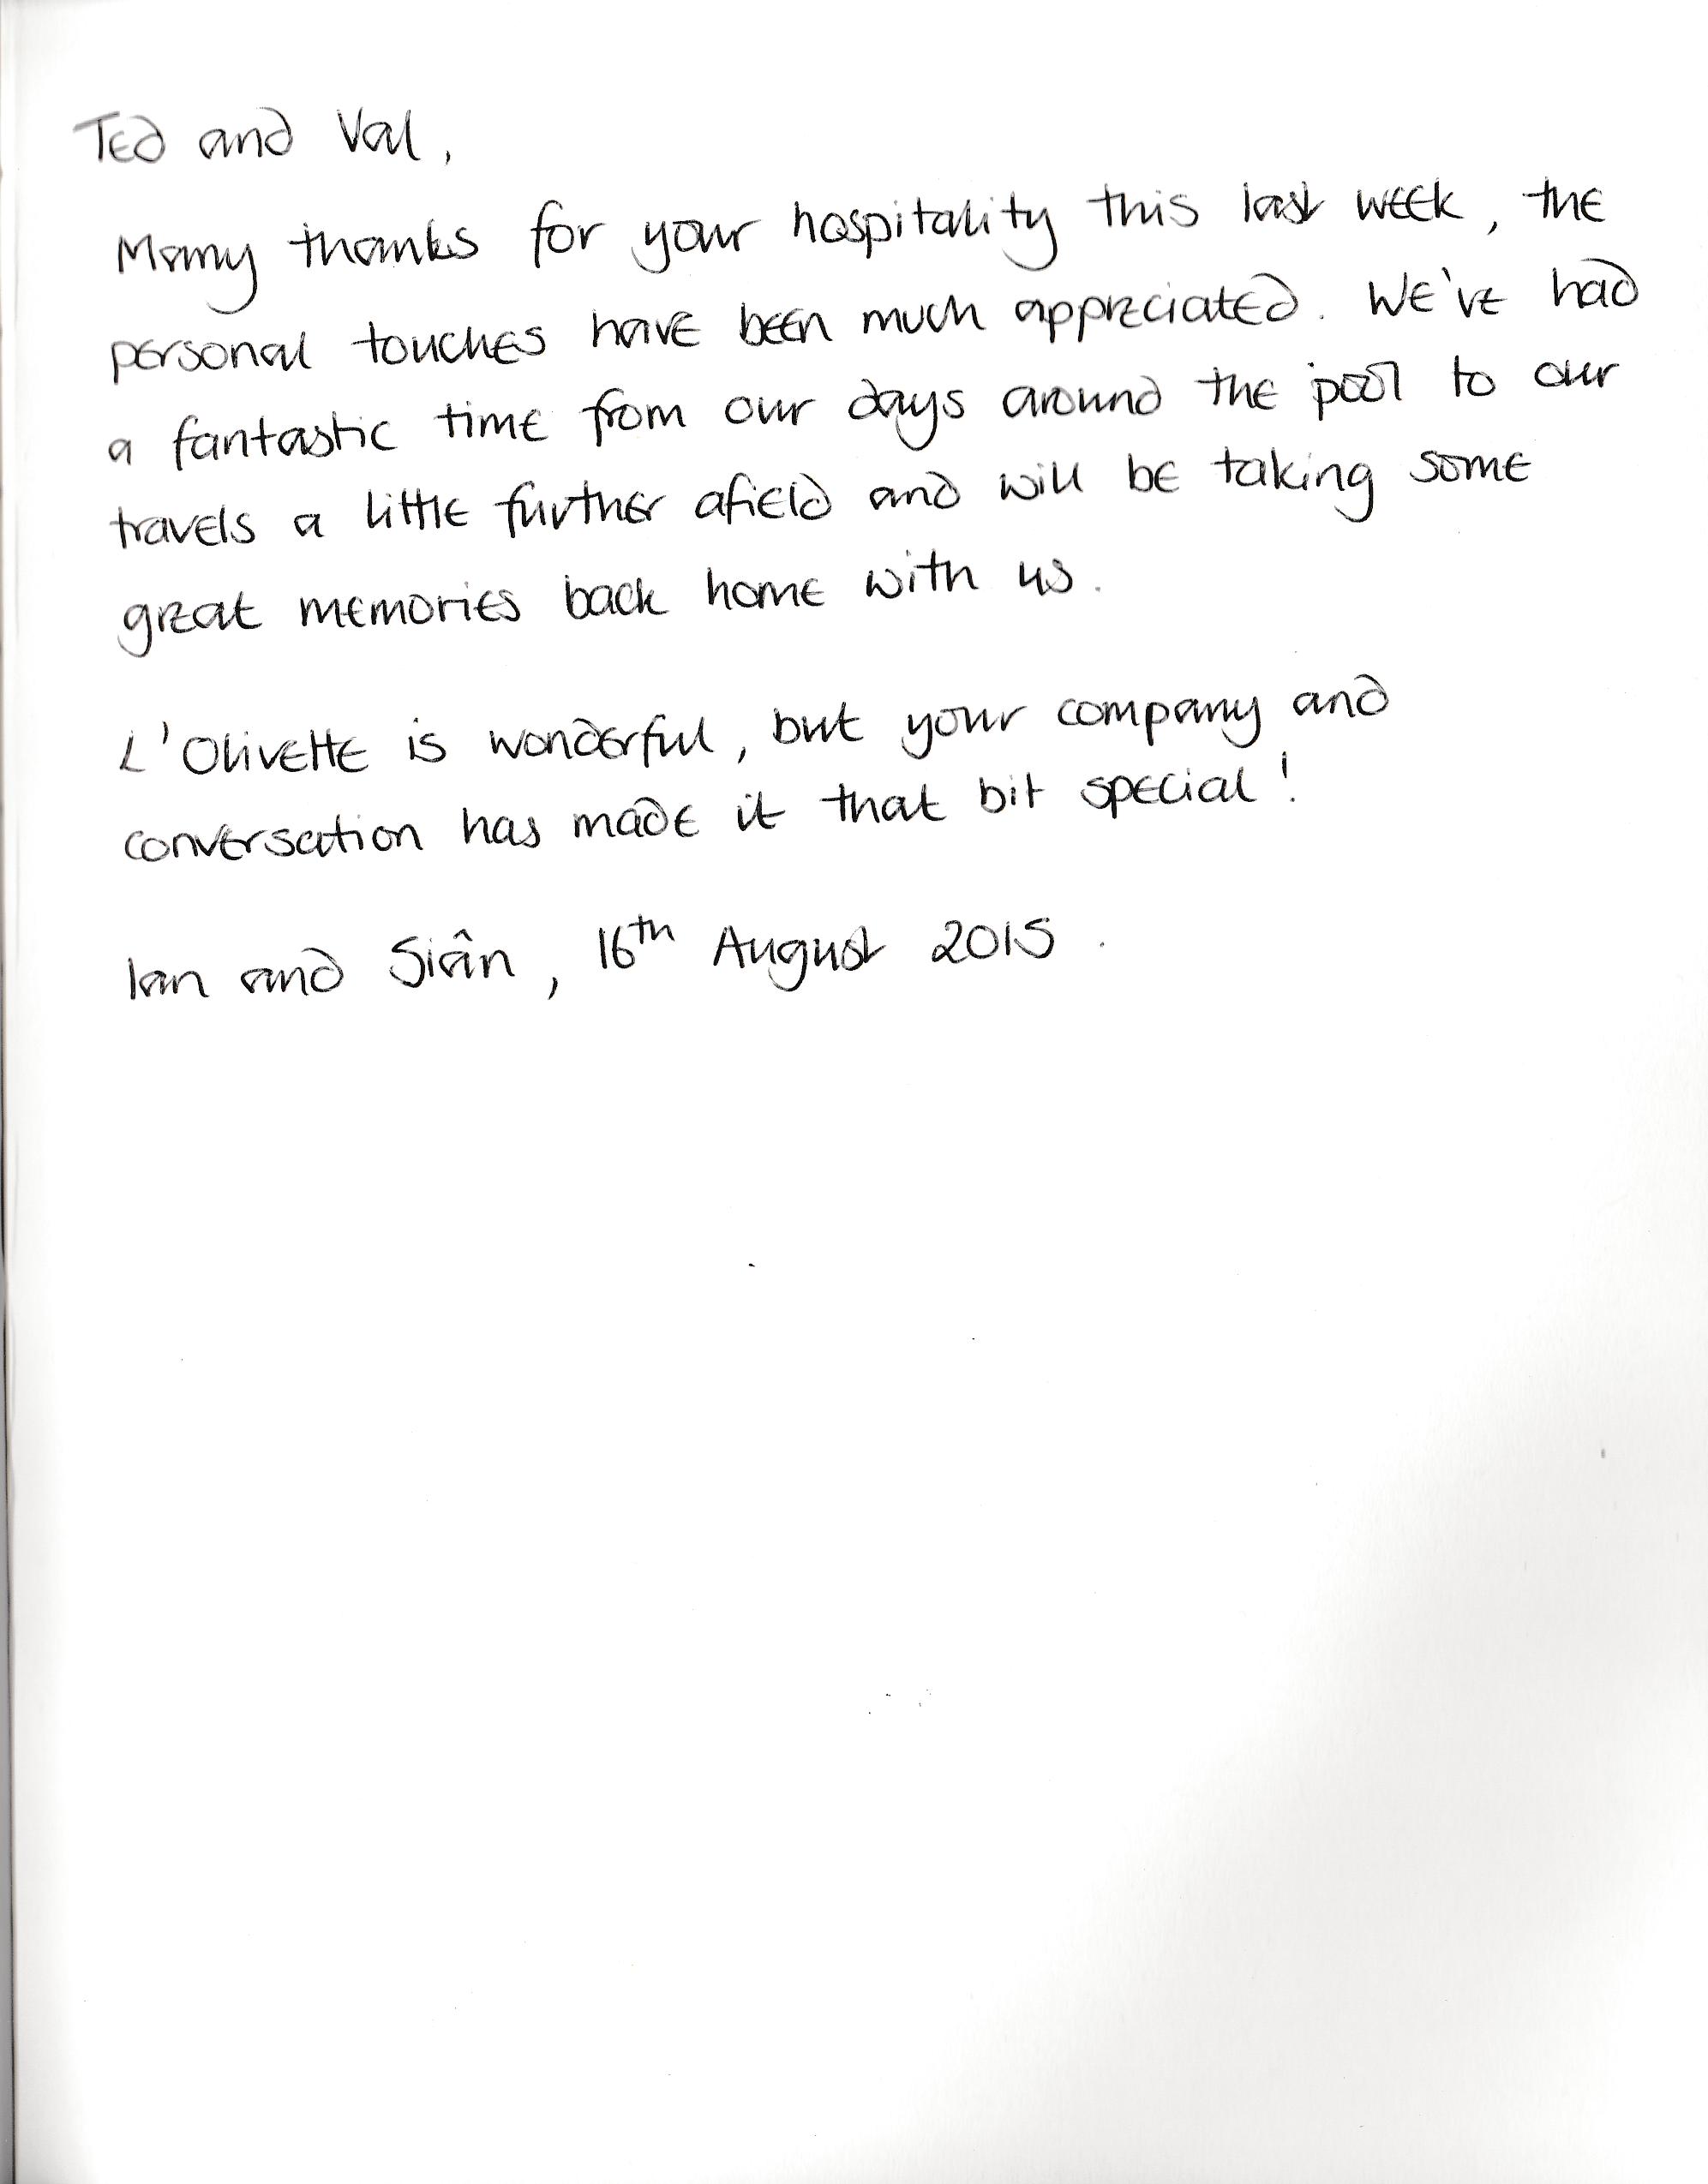 Ted and Val,
Many thanks for your hospitality this last week, the
personal touches have been much appreciated. We've had
a fantastic time from our days around the pool to our
travels a little further afield and will be taking some
great memories back home with us.
L'Olivette is wonderful, but your company and
conversation has made it that bit special!
Ian and Siân, 16th August 2015.